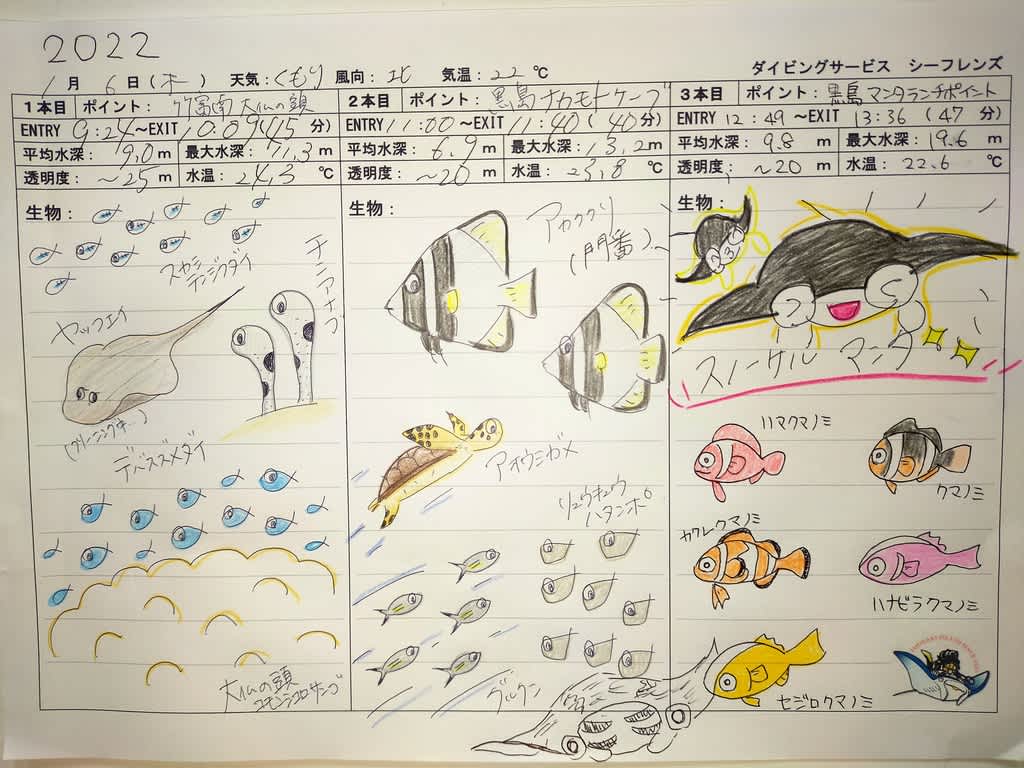 2022
1月 6日(木) 天気:くもり 風向:北 気温:22℃
ダイビングサービス シーフレンズ
1本目 ポイント:竹富南 大仏の頭
ENTRY 9:24~EXIT 10:09(45分)
平均水深:9.0m 最大水深:11.3m
透明度:~25m 水温:24.3℃
生物:
スカシテンジクダイ
チンアナゴ
ヤッコエイ
(クリーニング中~)
デバスズメダイ
大仏の頭
コモンシコロサンゴ
2本目 ポイント:黒島 ナカモトケーブ
ENTRY 11:00~EXIT 11:40(40分)
平均水深:6.9m 最大水深:13.2m
透明度:~20m 水温:23.8℃
生物:
アカククリ
(門番)~
アオウミガメ
リュウキュウ
ハタンポ
グルクン
3本目 ポイント:黒島 マンタランチポイント
ENTRY 12:49~EXIT 13:36(47分)
平均水深:9.8m 最大水深:19.6m
透明度:~20m 水温:22.6℃
生物:
スノーケル マンタ
ハマクマノミ
クマノミ
カクレクマノミ
ハナビラクマノミ
セジロクマノミ